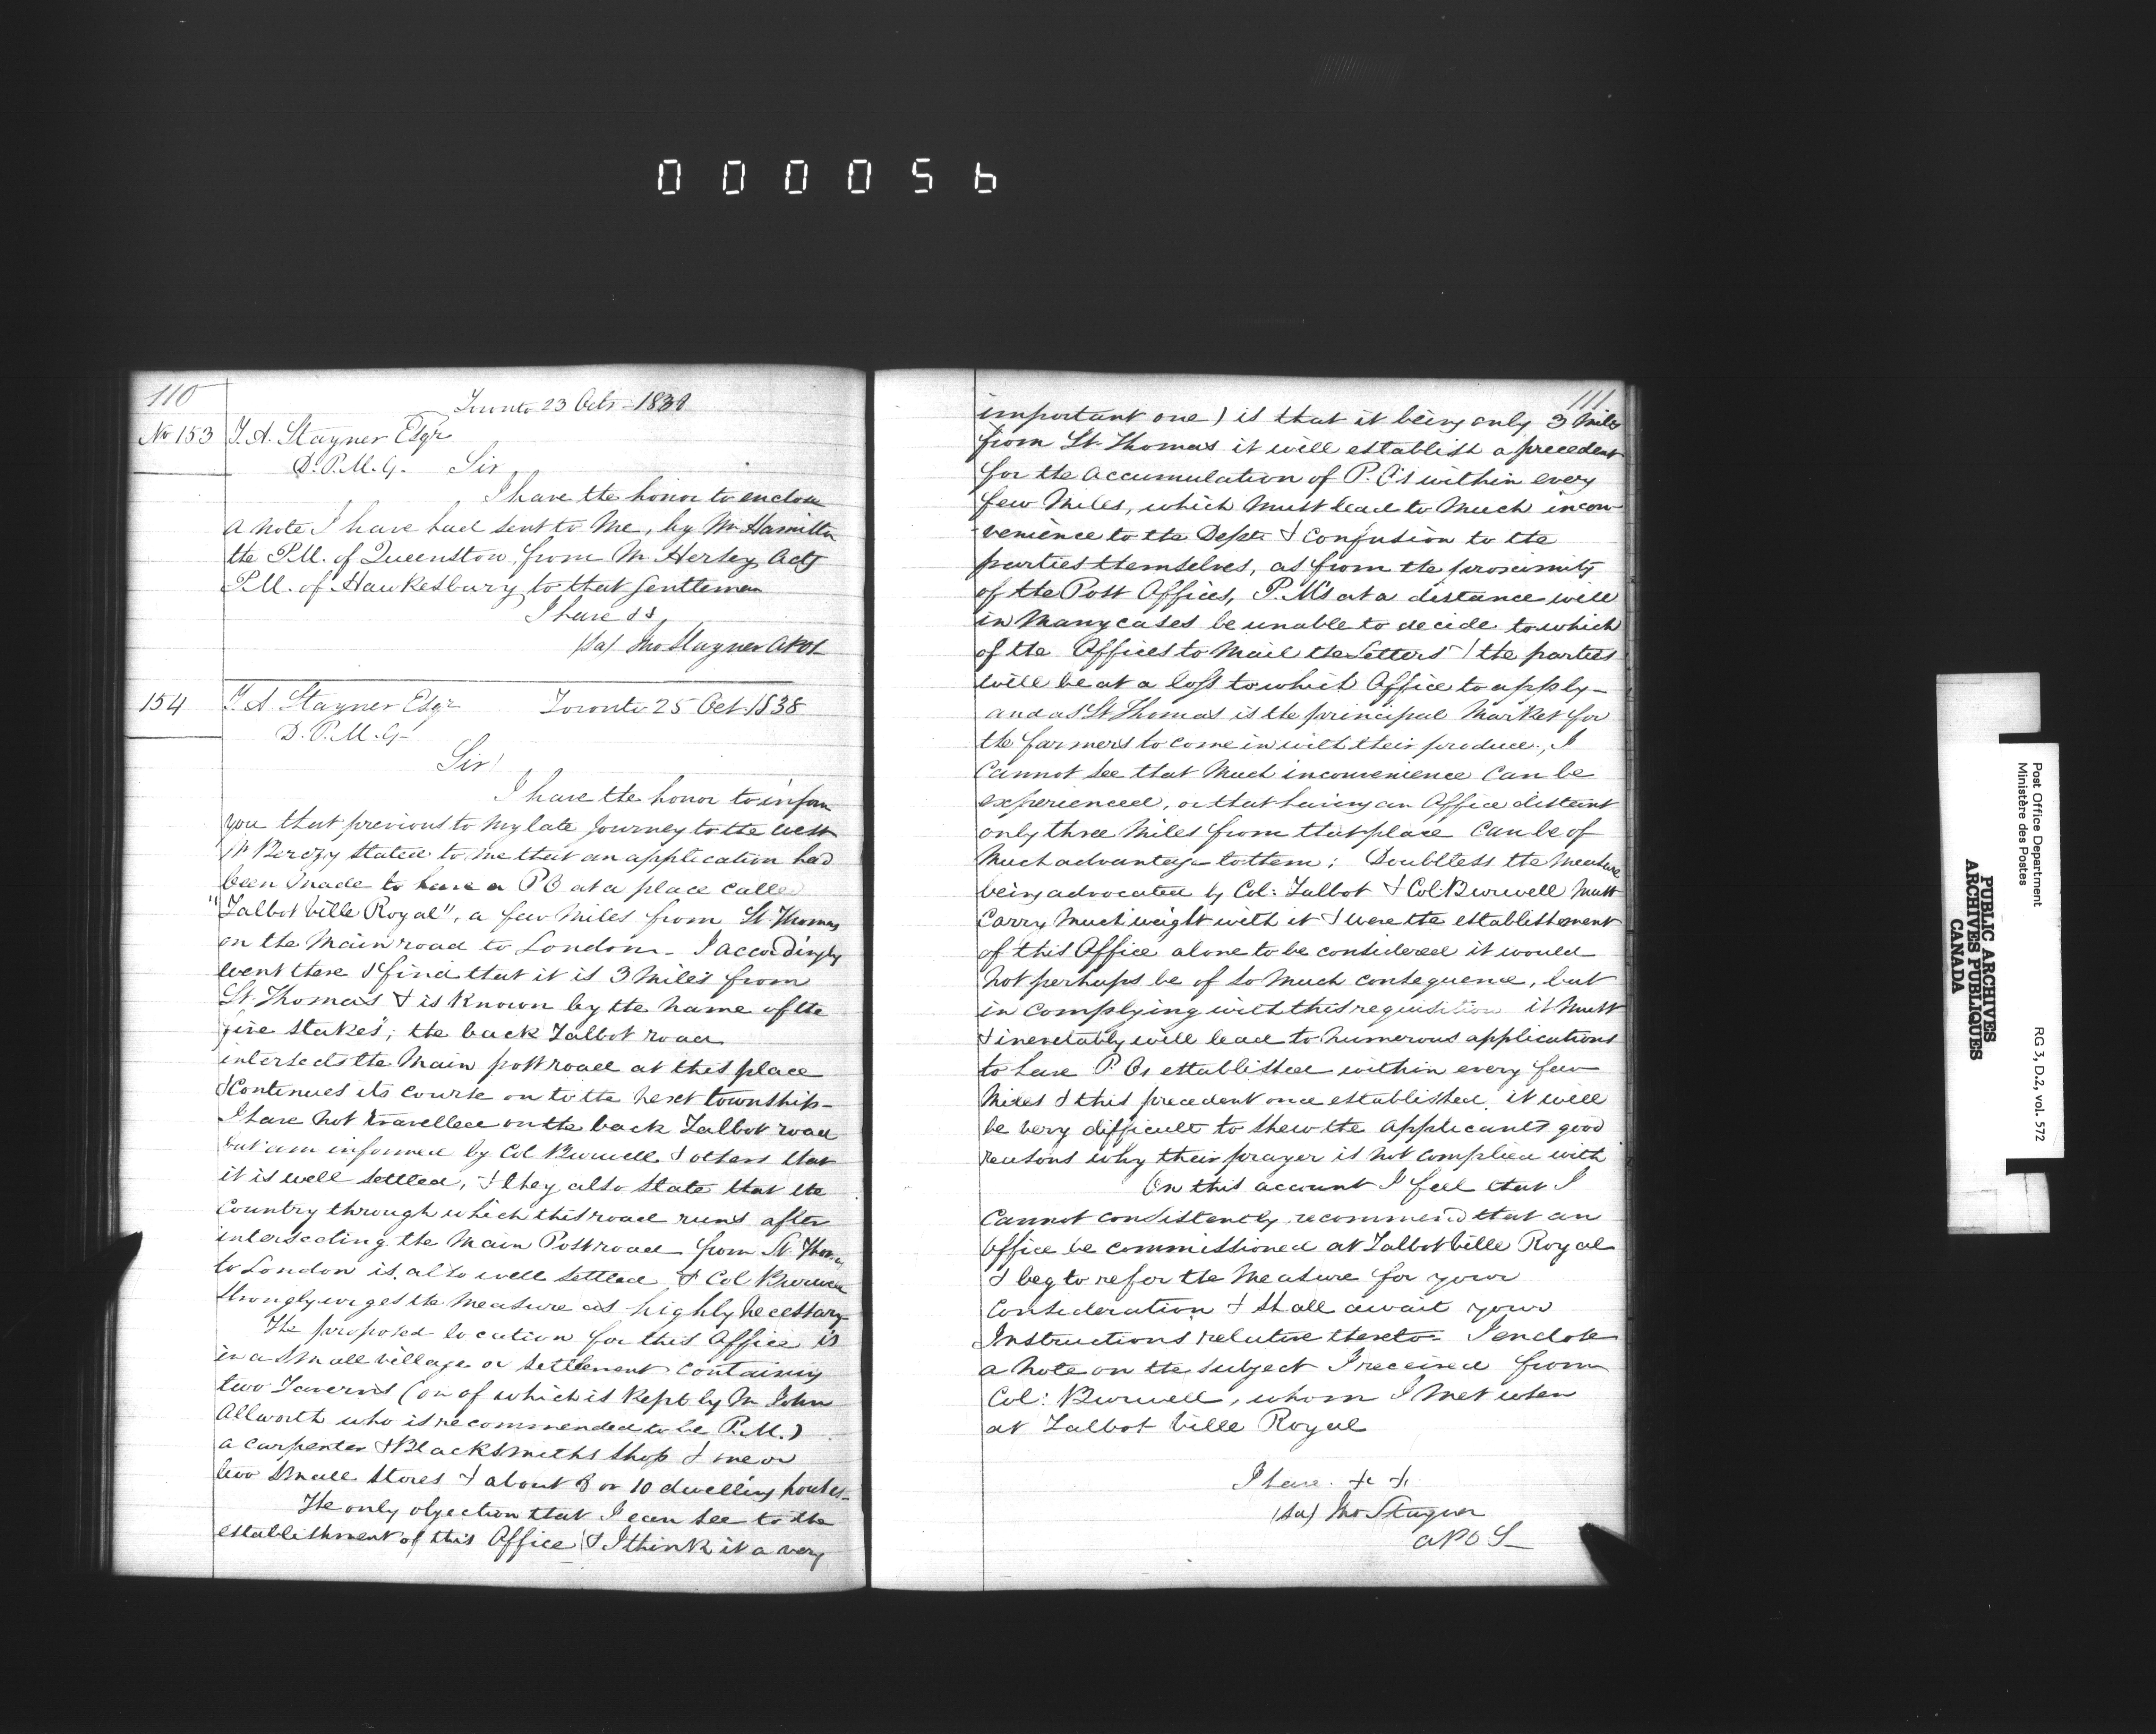 000056
110
Toronto 23 Octr 1838
No 153
T. A. Stayner Esqr
D. P. M. G. Sir
I have the honor to enclose
a note I have had sent to me, by Mr Hamilton
the P.M. of Queenston from Mr Hersey Actg
P.M. of Hawkesbury to that Gentleman
I have &&
Jno Stayner APOS
154
T. A. Stayner Esqr Toronto 25 Oct. 1838
D. P. M. G.
Sir
I have the honor to inform
you that previous to my late Journey to the West
Mr Berczy stated to me that an application had
been made to have a PO at a place called
"Talbot ville Royal", a few miles from St Thomas
on the Main road to London - I accordingly
went there & find that it is 3 Miles from
St Thomas & is known by the name of the
five stakes"; the back Talbot road
intersects the Main post road at this place
& Continues its course on to the next township -
I have not travelled on the back Talbot road
but am informed by Col Burwell & others that
it is well settled, & they also state that the
Country through which this road runs after
intersecting the Main Post road from St Thomas
to London is also well settled & Col Burwell
strongly urges the measure as highly necessary
The proposed location for this Office is
in a small village or settlement containing
two Taverns (on of which is kept by Mr John
Allworth who is recommended to be P.M.)
a carpenter & Blacksmiths shop & one or
two small stores & about 8 or 10 dwelling houses -
The only objection that I can see to the
establishment of this Office (& I think it a very
111
important one) is that it being only 3 miles
from St. Thomas it will establish a precedent
for the accumulation of P.O's within every
few Miles, which must lead to much incon-
-venience to the Dept & Confusion to the
parties themselves, as from the proximity
of the Post Offices, P.M's at a distance will
in many cases be unable to decide to which
of the Offices to Mail the Letters & the parties
will be at a loss to which Office to apply -
and as St Thomas is the principal Market for
the farmers to come in with their produce, I
Cannot see that much inconvenience can be
experienced, or that having an Office distant
only three Miles from that place can be of
much advantage to them: Doubtless the measure
being advocated by Col: Talbot & Col Burwell must
carry much weight with it & were the establishment
of this Office alone to be considered it would
not perhaps be of so much consequence, but
in complying with this requisition it must
& inevitably will lead to numerous applications
to have P.Os established within every few
Miles & this precedent once established, it will
be very difficult to shew the applicants good
reasons why their prayer is not complied with
On this account I feel that I
Cannot consistently recommend that an
Office be commissioned at Talbotville Royal
& beg to refer the measure for your
Consideration & shall await your
Instructions relative thereto. I enclose
a note on the subject I received from
Col: Burwell, whom I met when
at Talbot ville Royal
I have &c &c
Jno Stayner
APOS
Post Office Department
Ministère des Postes
RG 3, D.2, vol. 572
PUBLIC ARCHIVES
ARCHIVES PUBLIQUES
CANADA